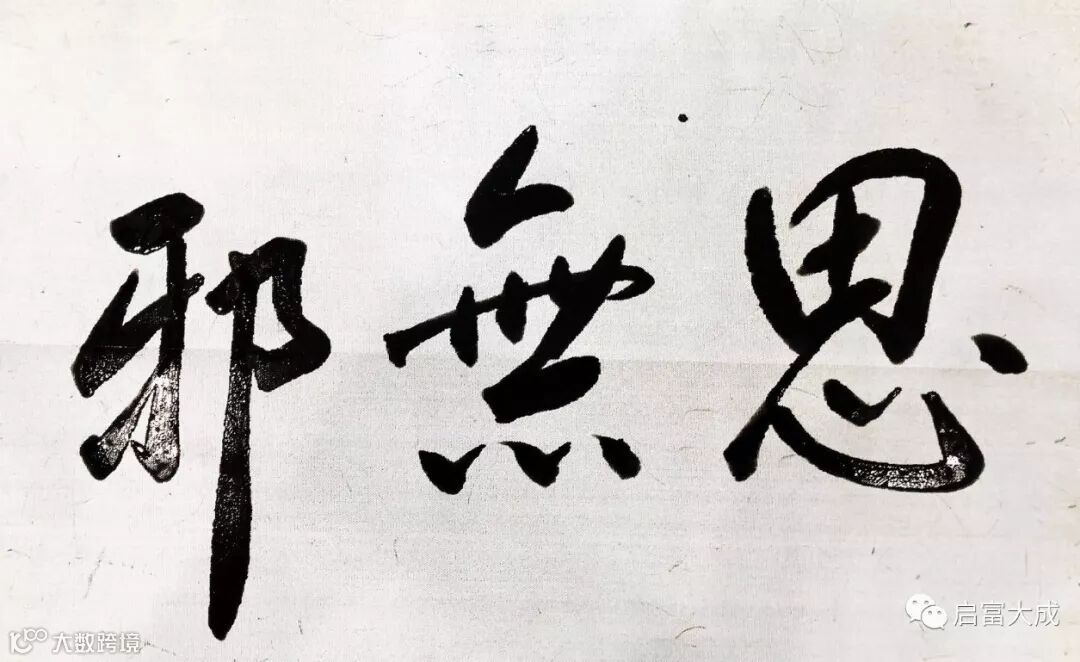 思無邪
启富大成
大数跨境